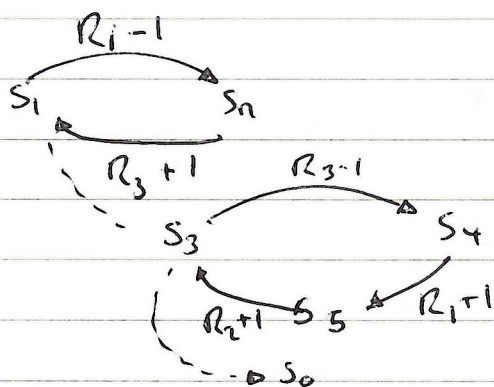 R1-1
S1 Sn
R3+1 R3-1
S3 S4
R2+1 S5 R1+1
S0